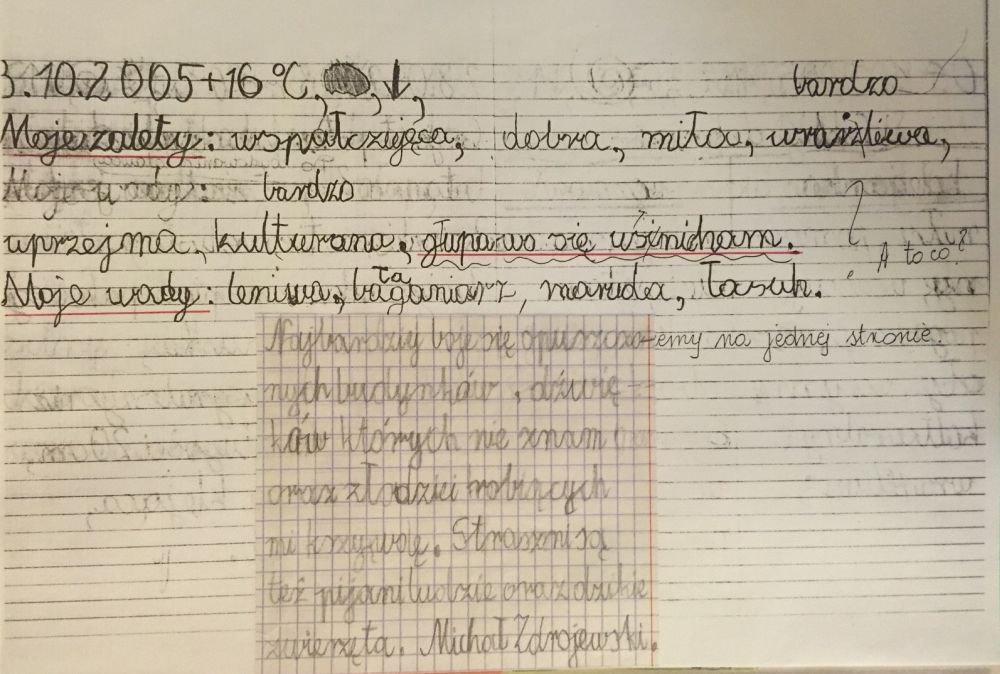 3.10.2005+16°C, , ↓,
bardzo
Moje zalety: wspułczująca, dobra, miła, wrażliwa,
Moje wady: bardzo
uprzejma, kulturana, głupawo się uśmicham.
A to co?
Moje wady: leniwa, bałaganiarz, maruda, łasuh.
Najbardziy boje się opuszczo-
emy na jednej stronie.
nych budynków, dźwię-
ków których nie znam
oraz złodziei robiących
mi krzywdę. Straszni są
też pijani ludzie oraz dzikie
zwierzęta. Michał Zdrojewski.